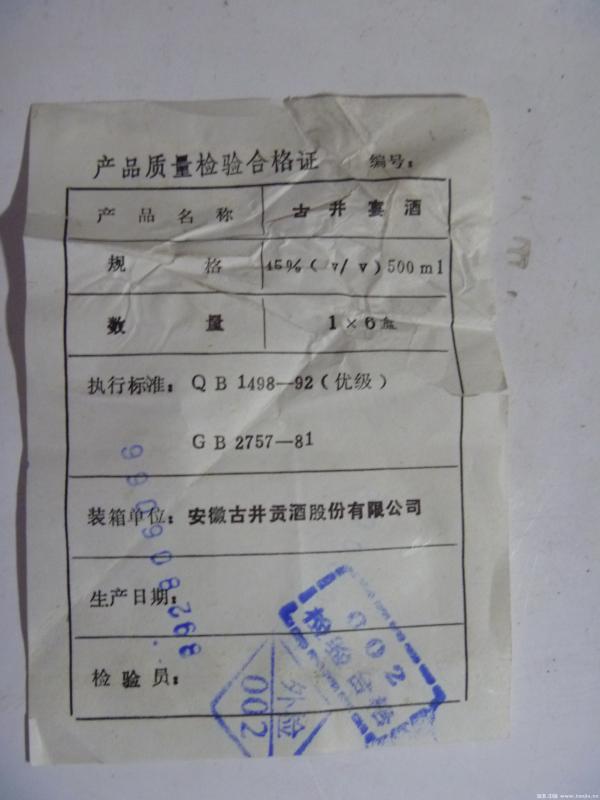 产品质量检验合格证 编号：
产品名称 古井宴酒
规格 45%（v/v）500ml
数量 1×6盒
执行标准：QB1498—92（优级）
GB2757—81
装箱单位：安徽古井贡酒股份有限公司
生产日期：
检验员：
002
检验合格
外检
002